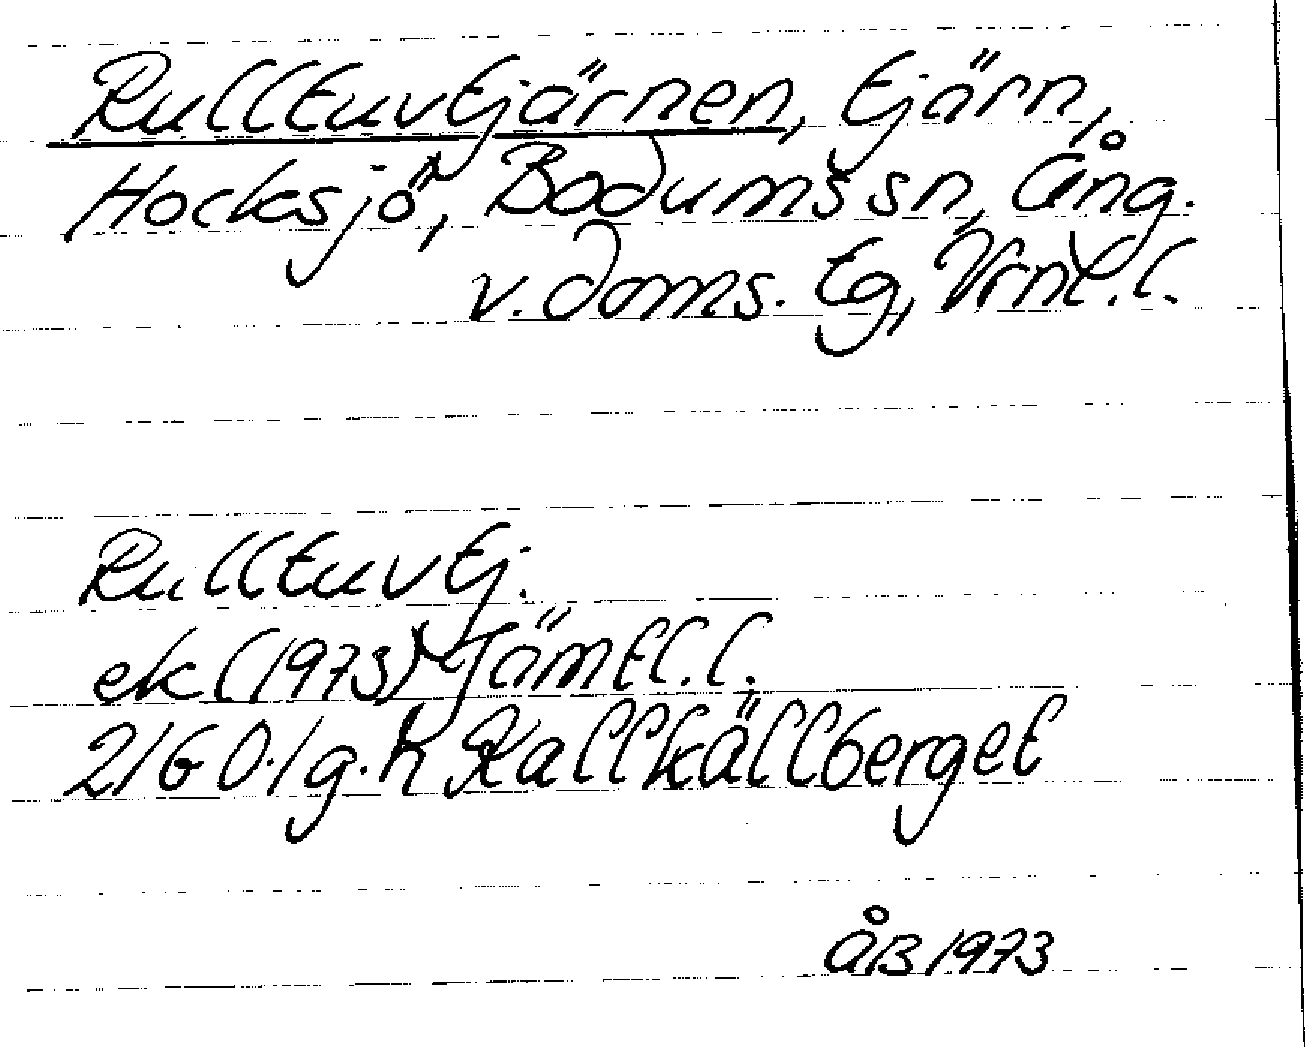 Rulltuvtjärnen, tjärn,
Hocksjö, Bodums sn, Ång.
v. doms. tg, Vrnl.l.
Rulltuvtj.
ek (1973) Jämtl.l.
2160.1g.h Kallkällberget
ÅB 1973